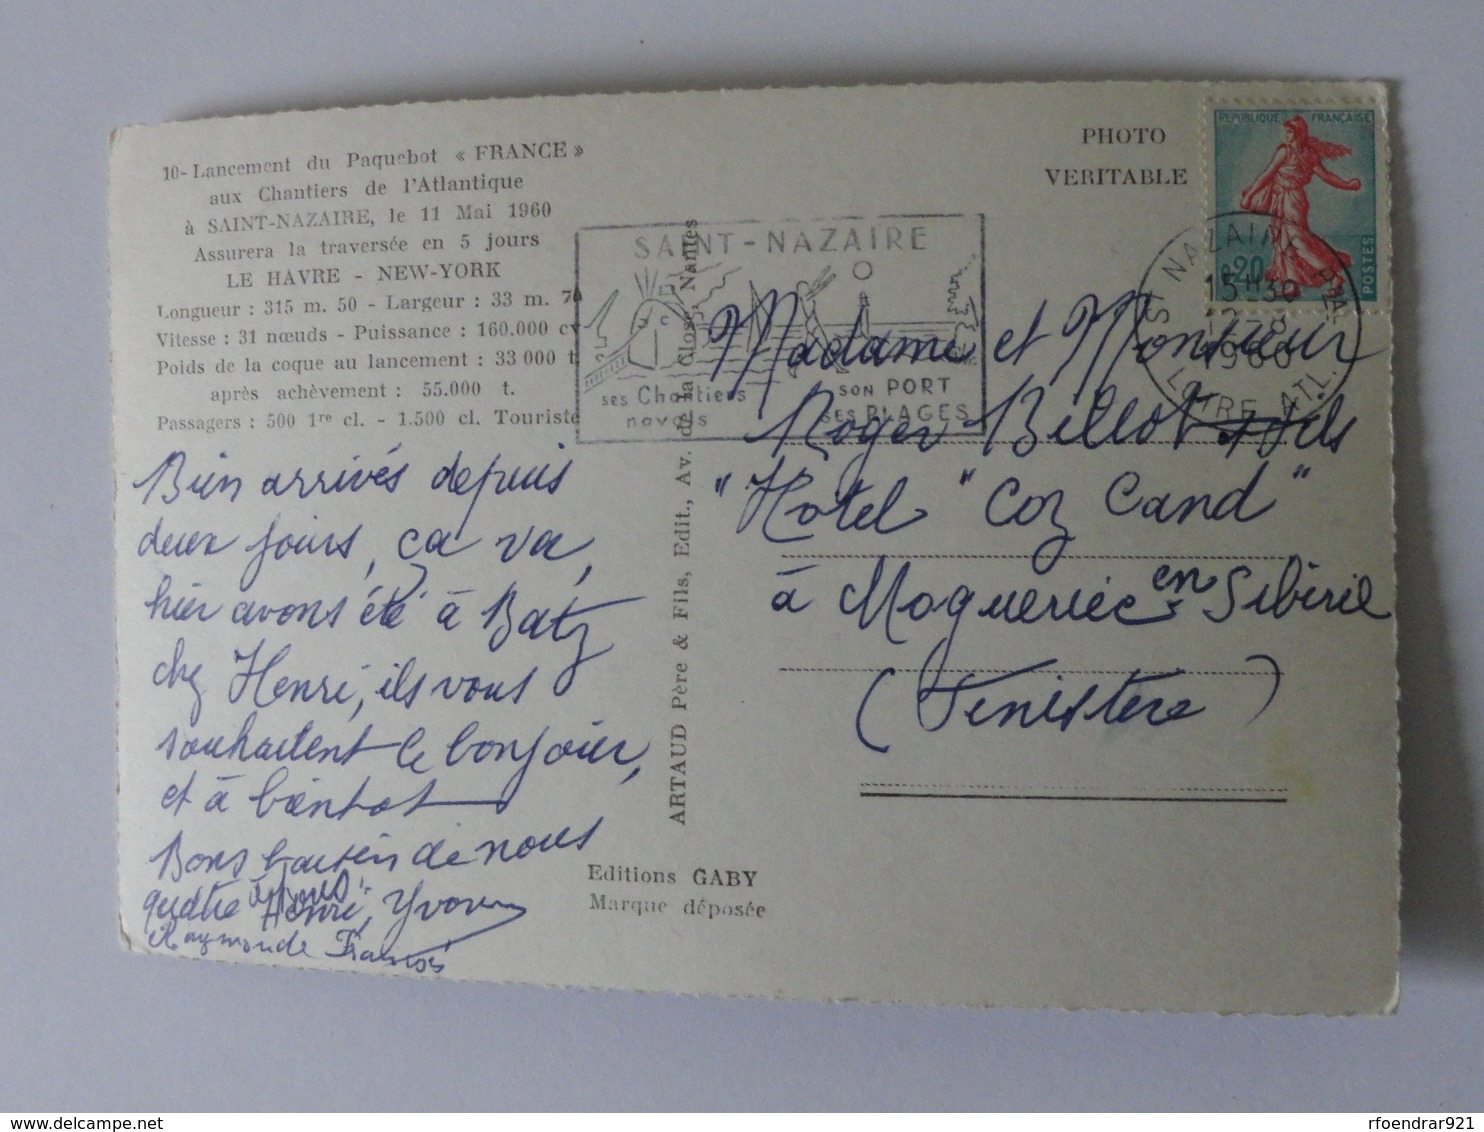 10- Lancement du Paquebot « FRANCE »
aux Chantiers de l'Atlantique
à SAINT-NAZAIRE, le 11 Mai 1960
Assurera la traversée en 5 jours
LE HAVRE - NEW-YORK
Longueur : 315 m. 50 - Largeur : 33 m. 70
Vitesse : 31 nœuds - Puissance : 160.000 cv
Poids de la coque au lancement : 33 000 t.
après achèvement : 55.000 t.
Passagers : 500 1re cl. - 1.500 cl. Touriste
PHOTO
VERITABLE
REPUBLIQUE FRANÇAISE
0,20
POSTES
ST NAZAIRE PAL
15H30
2-8
1960
LOIRE ATL.
SAINT-NAZAIRE
ses Chantiers
navals
SON PORT
SES PLAGES
Bien arrivés depuis
deux jours, ça va,
hier avons été à Batz
chez Henri, ils vous
souhaitent le bonjour,
et à bientot
Bons baisers de nous
quatre à vous
Henri, Yvonne
Raymonde Francis
ARTAUD Père & Fils, Edit., Av. de la Close, Nantes
Madame et Monsieur
Roger Billot & fils
"Hôtel "Coz Cand"
à Mogueriec en Sibiril
(Finistère)
Editions GABY
Marque déposée
delcampe.net
rfoendrar921